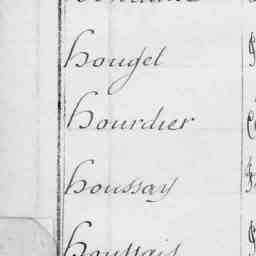 hougel
hourdier
houssay
houssais